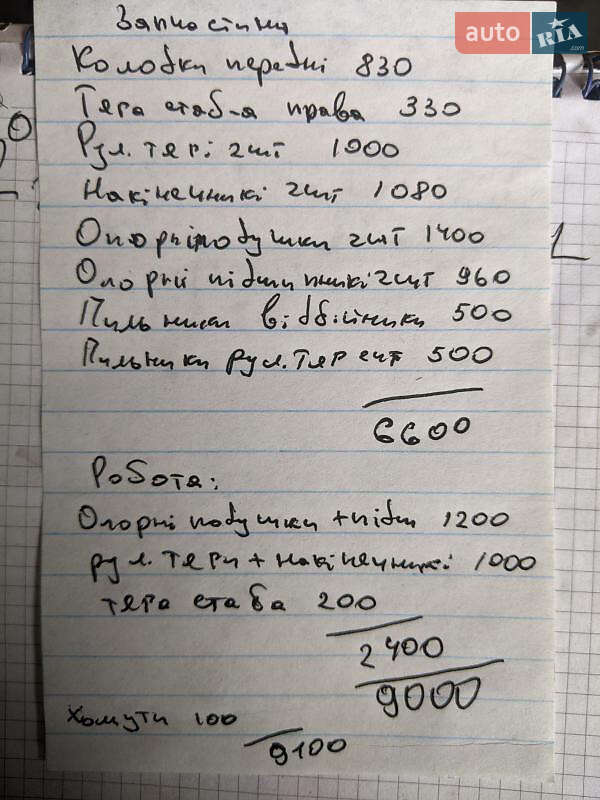 auto RIA .com
Запчастини
Колодки передні 830
Тяга стаб-а права 330
Рул. тягі 2шт 1000
Накінечникі 2шт 1080
Опорні подушки 2шт 1400
Опорні підшипникі 2шт 960
Пильники відбійники 500
Пильники рул. тяг 2шт 500
6600
Робота:
Опорні подушки + підш 1200
рул. тяги + накінечникі 1000
тяга стаба 200
2400
9000
хомути 100
9100